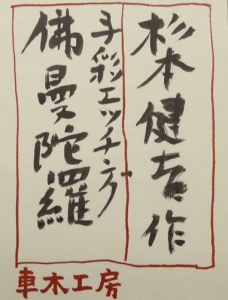 杉本健吉作
手彩エッチング
佛曼陀羅
車木工房